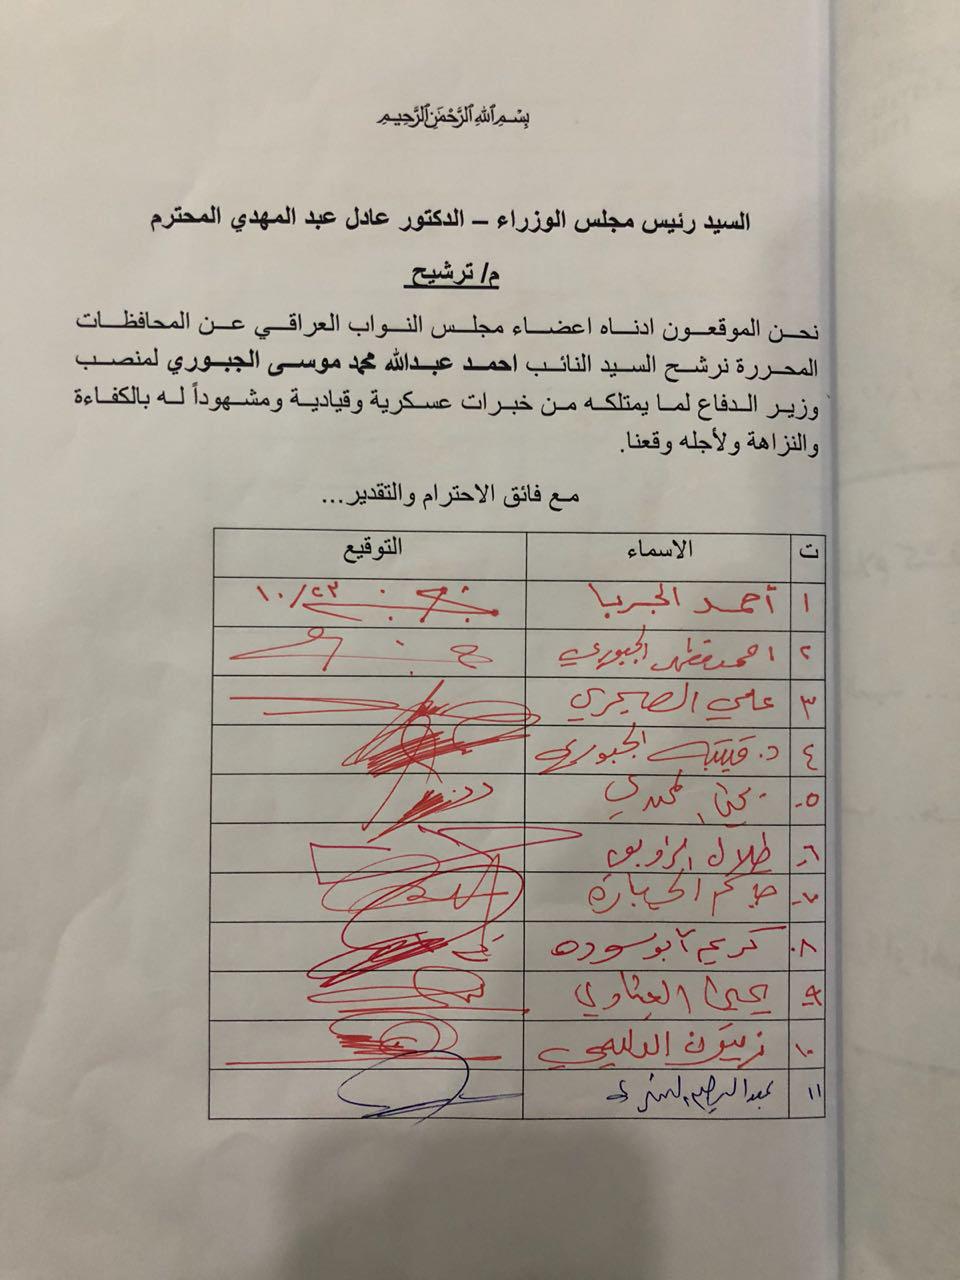 بسم الله الرحمن الرحيم
السيد رئيس مجلس الوزراء – الدكتور عادل عبد المهدي المحترم
م/ ترشيح
نحن الموقعون ادناه اعضاء مجلس النواب العراقي عن المحافظات
المحررة نرشح السيد النائب احمد عبدالله محمد موسى الجبوري لمنصب
وزير الدفاع لما يمتلكه من خبرات عسكرية وقيادية ومشهوداً له بالكفاءة
والنزاهة ولأجله وقعنا.
مع فائق الاحترام والتقدير...
ت الاسماء التوقيع
١ أحمد الجربا ١٠/٢٣
٢ احمد الجبوري
٣ علي الصجري
٤ د. قتيبة الجبوري
٥-
٦- طلال الزوبعي
٧-
٨- كريم ابو سوده
٩- يحيى
١٠- زيتون الدليمي
١١